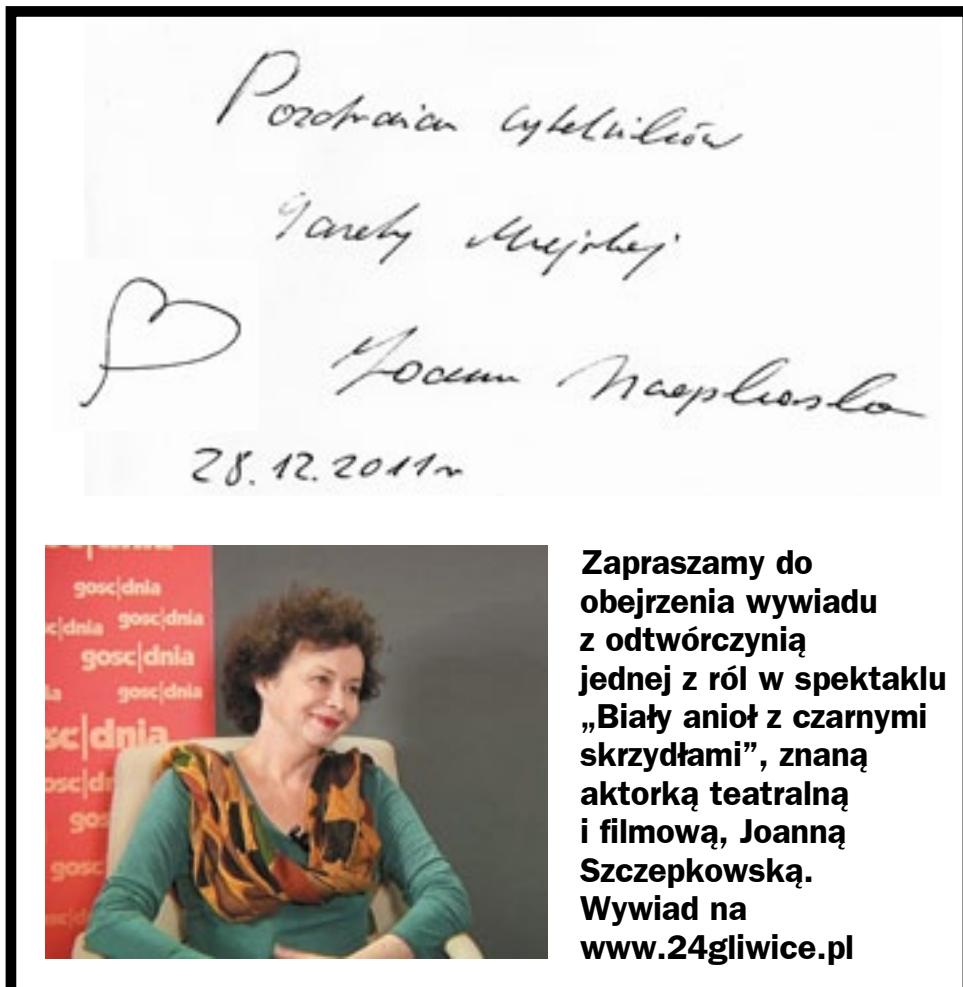 Pozdrawiam czytelników
Gazety Miejskiej
Joanna Szczepkowska
28.12.2011r
gosc|dnia
gosc|dnia
c|dnia
gosc|dnia
gosc|dnia
sc|dnia
osc|d
gos
gosc
Zapraszamy do
obejrzenia wywiadu
z odtwórczynią
jednej z ról w spektaklu
„Biały anioł z czarnymi
skrzydłami”, znaną
aktorką teatralną
i filmową, Joanną
Szczepkowską.
Wywiad na
www.24gliwice.pl